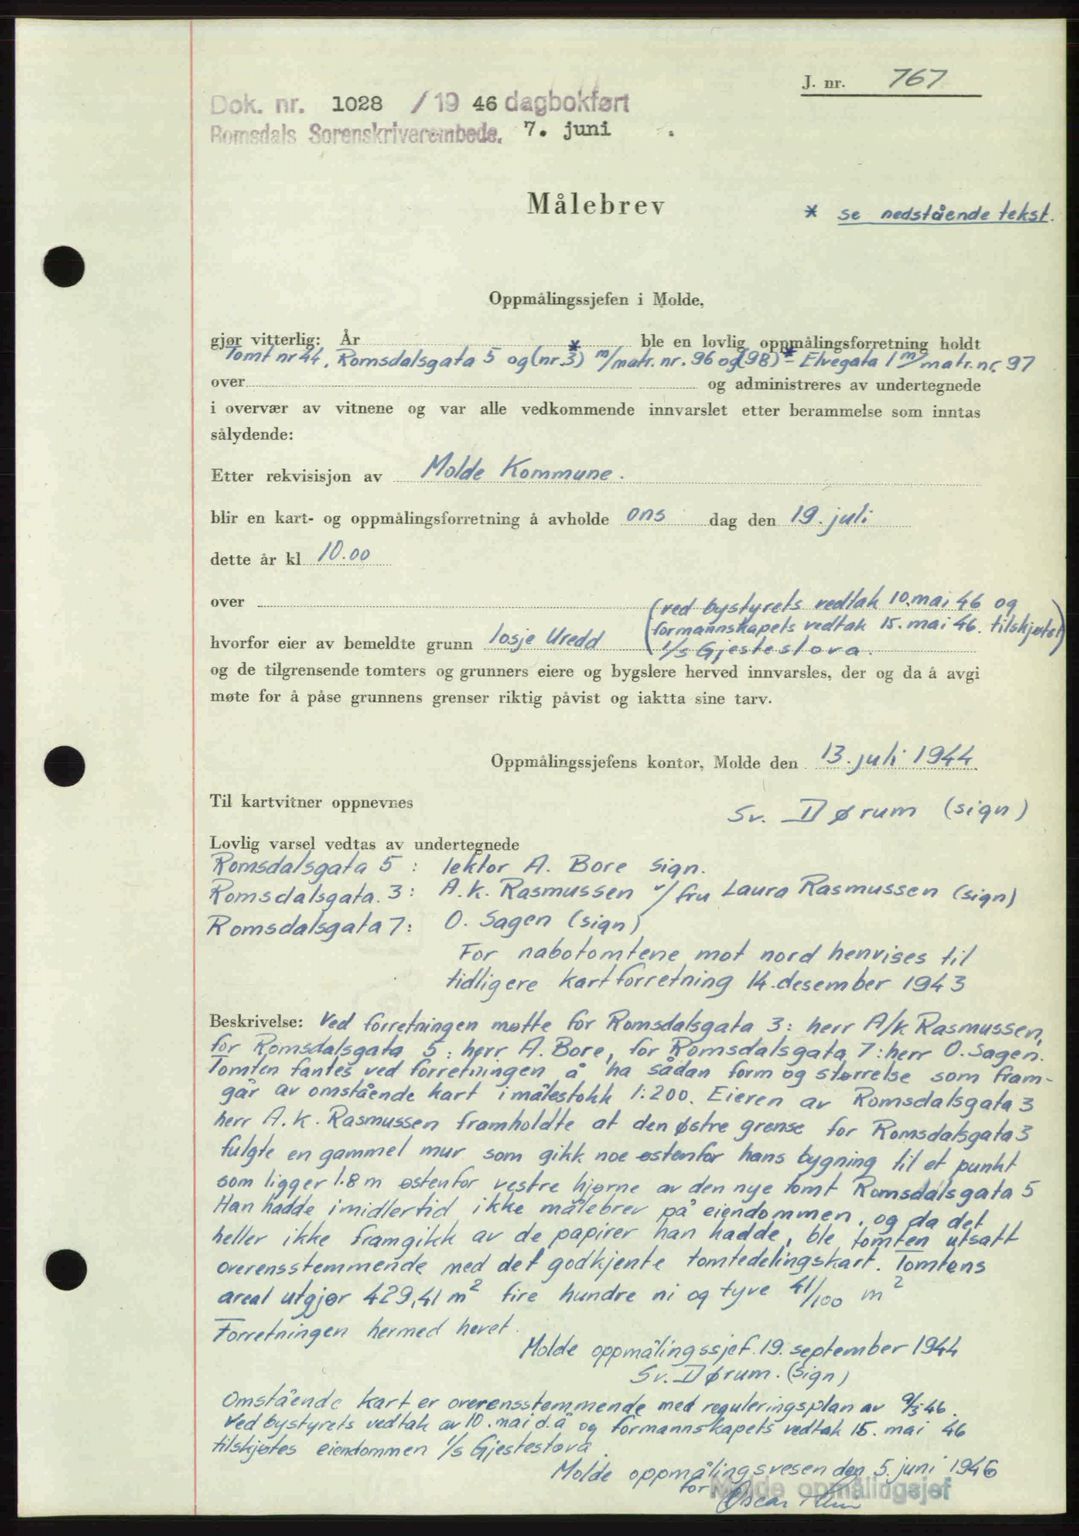 J. nr. 767
Dok. nr. 1028 / 19 46 dagbokført
Romsdals Sorenskriverembede. 7. juni .
Målebrev
* se nedstående tekst.
Oppmålingssjefen i Molde,
gjør vitterlig: År * ble en lovlig oppmålingsforretning holdt
Tomt nr 44, Romsdalsgata 5 og (nr. 3) m/matr. nr. 96 og (98)* - Elvegata 1 m/matr. nr. 97
over og administreres av undertegnede
i overvær av vitnene og var alle vedkommende innvarslet etter berammelse som inntas
sålydende:
Etter rekvisisjon av Molde Kommune.
blir en kart- og oppmålingsforretning å avholde ons dag den 19. juli
dette år kl 10.00
over (ved bystyrets vedtak 10. mai 46 og
formannskapets vedtak 15. mai 46. tilskjøtet
hvorfor eier av bemeldte grunn losje Uredd I/S Gjestestova.)
og de tilgrensende tomters og grunners eiere og bygslere herved innvarsles, der og da å avgi
møte for å påse grunnens grenser riktig påvist og iaktta sine tarv.
Oppmålingssjefens kontor, Molde den 13. juli 1944
Til kartvitner oppnevnes
Sv. Dørum (sign)
Lovlig varsel vedtas av undertegnede
Romsdalsgata 5 : lektor A. Bore sign.
Romsdalsgata. 3: A. K. Rasmussen v/ fru Laura Rasmussen (sign)
Romsdalsgata 7: O. Sagen (sign)
For nabotomtene mot nord henvises til
tidligere kartforretning 14. desember 1943
Beskrivelse: Ved forretningen møtte for Romsdalsgata 3: herr A/K. Rasmussen,
for Romsdalsgata 5: herr A. Bore, for Romsdalsgata 7: herr O. Sagen.
Tomten fantes ved forretningen å ha sådan form og størrelse som frem-
går av omstående kart i målestokk 1:200. Eieren av Romsdalsgata 3
herr A. K. Rasmussen framholdte at den østre grense for Romsdalsgata 3
fulgte en gammel mur som gikk noe østenfor hans bygning til et punkt
som ligger 1.8 m østenfor vestre hjørne av den nye tomt Romsdalsgata 5
Han hadde imidlertid ikke målebrev på eiendommen, og da det
heller ikke framgikk av de papirer han hadde, ble tomten utsatt
overensstemmende med det godkjente tomtedelingskart. Tomtens
areal utgjør 429,41 m² fire hundre ni og tyve 41/100 m²
Forretningen hermed hevet.
Molde oppmålingssjef. 19. september 1944
Sv. Dørum. (sign)
Omstående kart er overensstemmende med reguleringsplan av 9/3 46.
Ved bystyrets vedtak av 10. mai d.å og formannskapets vedtak 15. mai 46
tilskjøtes eiendommen I/S Gjestestova.
Molde oppmålingsvesen den 5. juni 1946
for Molde opmålingsjef
Oscar